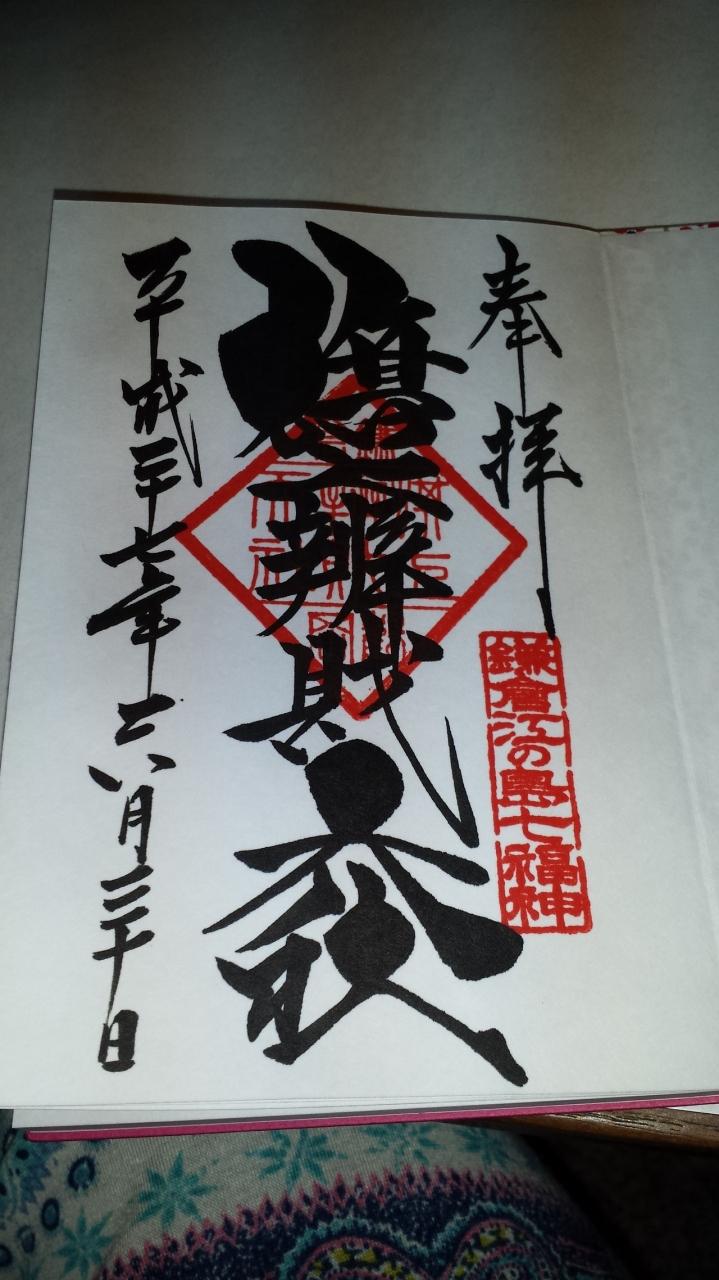 奉拝
鎌倉江の島七福神
旗上辨財天
平成二十七年六月三十日